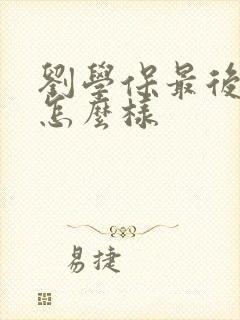 劉學保最後
怎麼樣
易捷